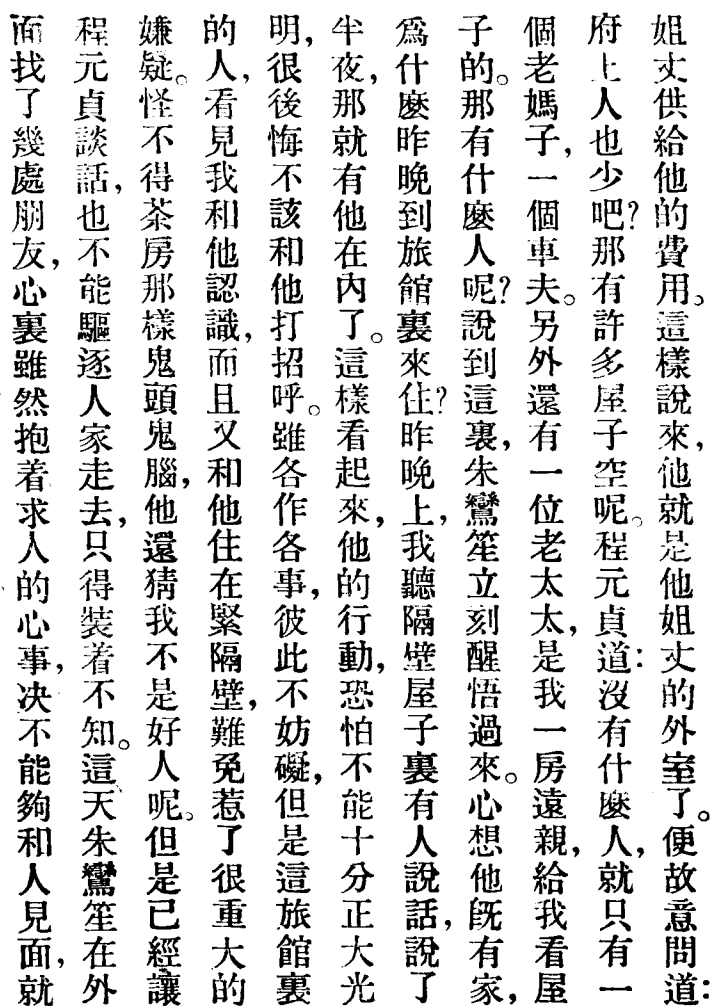 姐丈供給他的費用。這樣說來，他就是他姐丈的外室了。便故意問道：
府上人也少吧？那有許多屋子空呢。程元貞道：沒有什麼人，就只有一
個老媽子，一個車夫。另外還有一位老太太，是我一房遠親，給我看屋
子的。那有什麼人呢？說到這裏，朱鸞笙立刻醒悟過來。心想他旣有家，
爲什麼昨晚到旅館裏來住？昨晚上，我聽隔壁屋子裏有人說話，說了
半夜，那就有他在內了。這樣看起來，他的行動，恐怕不能十分正大光
明，很後悔不該和他打招呼。雖各作各事，彼此不妨礙，但是這旅館裏
的人，看見我和他認識，而且又和他住在緊隔壁，難免惹了很重大的
嫌疑。怪不得茶房那樣鬼頭鬼腦，他還猜我不是好人呢。但是已經讓
程元貞談話，也不能驅逐人家走去，只得裝着不知。這天朱鸞笙在外
面找了幾處朋友，心裏雖然抱着求人的心事，决不能夠和人見面，就